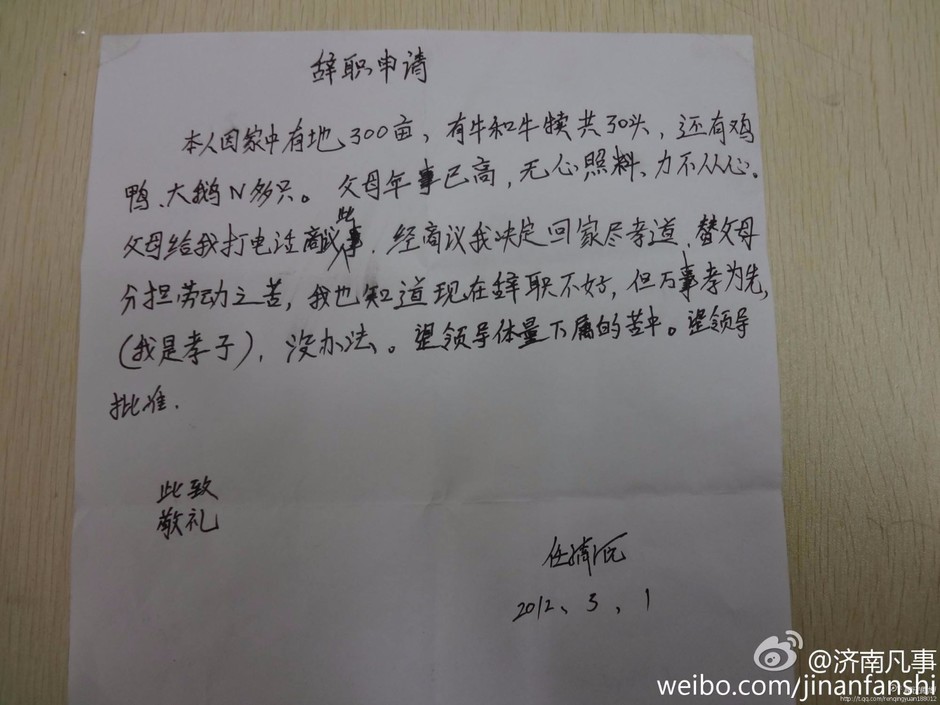 辞职申请
本人因家中有地300亩，有牛和牛犊共30头，还有鸡
鸭、大鹅N多只。父母年事已高，无心照料、力不从心。
父母给我打电话商议此事．经商议我决定回家尽孝道、替父母
分担劳动之苦，我也知道现在辞职不好，但万事孝为先，
(我是孝子)，没办法。望领导体量下属的苦中。望领导
批准．
此致
敬礼
任
2012、3、1
@济南凡事
weibo.com/jinanfanshi
http://t.qq.com/renqingyuan188012